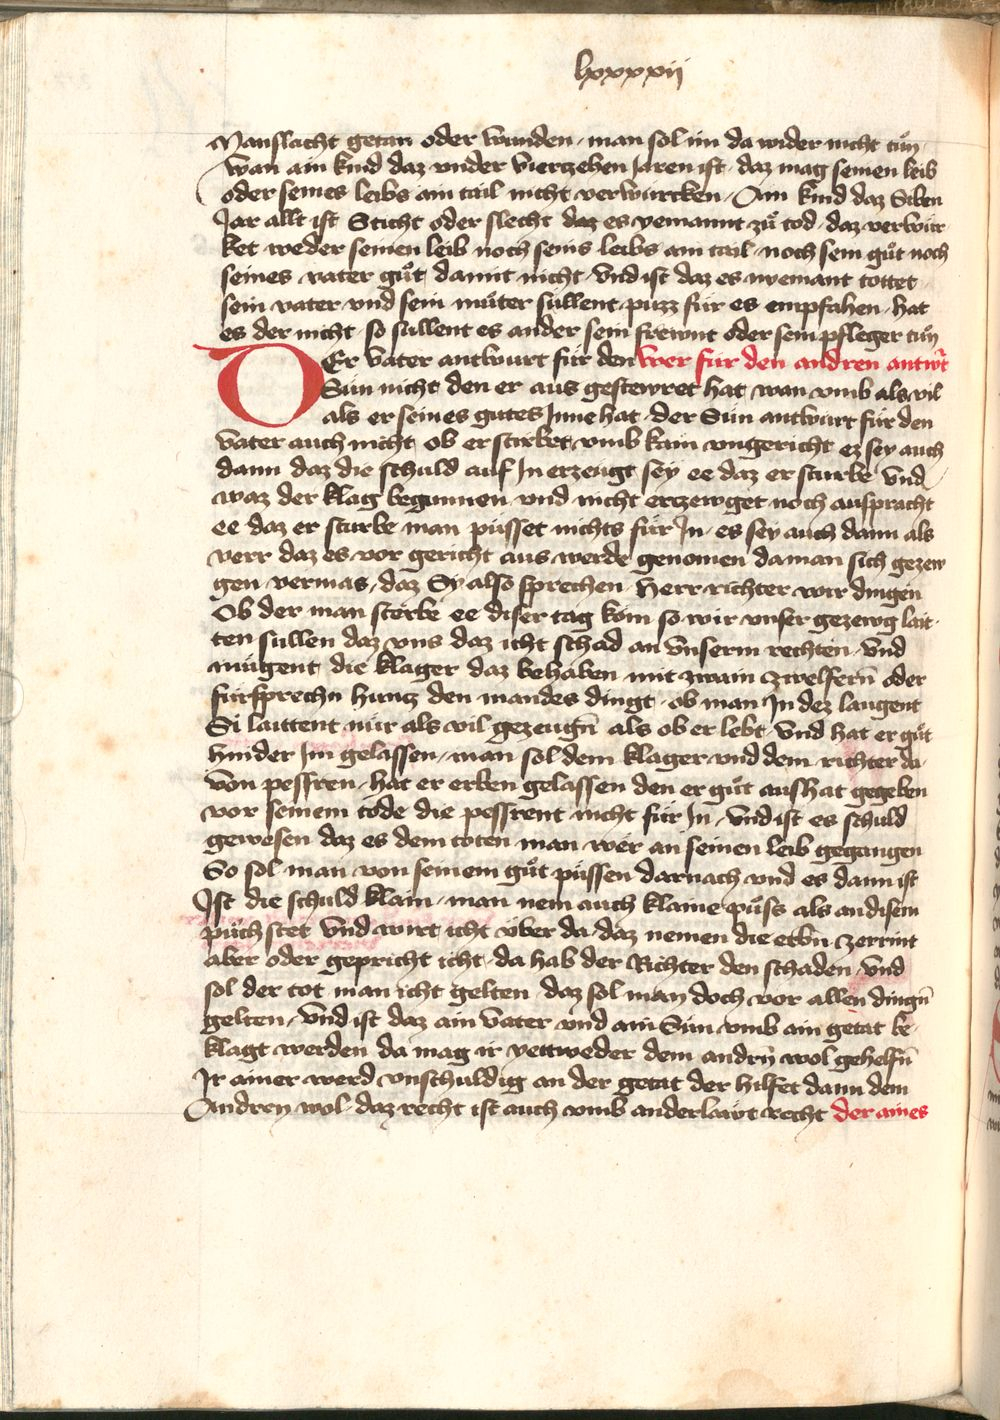 lxxxxij
Manslacht getan oder wunden, man sol im da wider nicht tůn,
wan ain kind daz vnder viertzehen Jaren ist, daz mag seinen leib
oder seines leibs ain tail nicht verwurcken, Ain kind daz Siben
Jar allt ist Sticht oder slecht daz es yemannt zů tod, daz verwür-
ket weder seinen leib noch seins leibs ain tail, noch sein gůt noch
seines vater gůt damit nicht, vnd ist daz es nyemant tottet
sein vater vnd sein můter süllent puzz für es empfahen, hat
es der nicht, so süllent es ander sein frewnt oder sein pfleger tůn
DEr vater antwurt für den wer für den andren antwrt
Sün nicht den er aus gestewret hat, wan vmb als vil
als er seines gutes Jnne hat, der Sün antwurt für den
vater auch nicht, ob er stirbet, vmb kain vngericht, ez sey auch
dann daz die schuld auf Jn erzeugt sey ee daz er sturbe, vnd
waz der klag begunnen vnd nicht ertzewget noch auspracht
ee daz er sturbe, man püsset nichts für Jn, es sey auch dann als
verr daz es vor gericht aus werde genomen da man sich gezew
gen vermas, daz Sy also sprechen, herr richter wir dingen
Ob der man sterbe ee diser tag kom so wir vnser gezewg lait-
ten sullen daz vns daz icht schad an vnserm rechten, vnd
mügent die klager daz behaben mit zwain zwelfern oder
fürsprechn huntz den mandes dingt, ob man Jn dez laugent
Si laittent nür als vil gezeugn als ob er lebt, vnd hat er gůt
hinder Jm gelassen, man sol dem klager vnd dem richter da
von pessren, hat er erben gelassen den er gůt aufhat gegeben
vor seinem tode die pessrent nicht für Jn, vnd ist es schuld
gewesen daz es dem toten man wer an seinen leib gegangen
So sol man von seinem gůt püssen darnach vnd es dann ist
Ist die schuld klain, man nem auch klaine půss als an disem
půch stet vnd wirt icht über da, daz nemen die erbn zerrint
aber oder gepricht icht, da hab der Richter den schaden, vnd
sol der tot man icht gelten, daz sol man doch vor allen dingn
gelten, vnd ist daz ain vater vnd ain Sün vmb ain getat be
klagt werden da mag ir yettweder dem andrn wol gehelfn
Jr ainer werd vnschuldig an der getat der hilfet dann dem
Andren wol, daz recht ist auch vmb anderlaiyt recht der aines